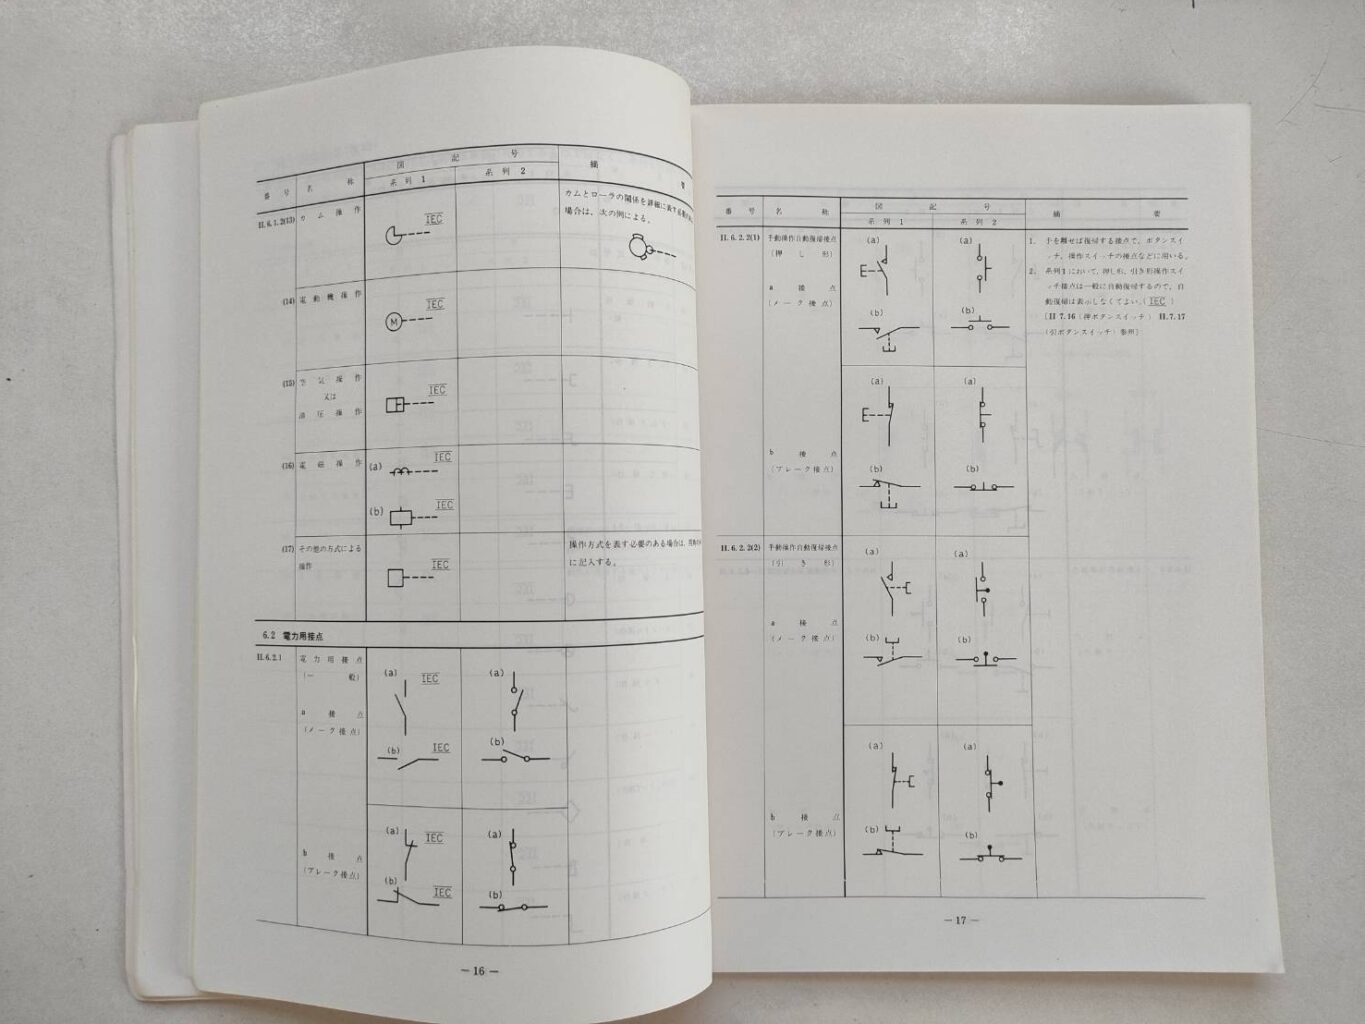 番号 名称 図記号 摘要
系列1 系列2
II.6.1.2(13) カム操作 IEC カムとローラの関係を詳細に表す必要の
場合は、次の例による。
(14) 電動機操作 IEC
M
(15) 空気操作 IEC
又は
油圧操作
(16) 電磁操作 (a) IEC
(b) IEC
(17) その他の方式による 操作方式を表す必要のある場合は、
操作 IEC に記入する。
6.2 電力用接点
II.6.2.1 電力用接点
(一般) (a) IEC (a)
a 接点
(メーク接点)
(b) IEC (b)
(a) IEC (a)
b 接点
(ブレーク接点)
(b) IEC (b)
— 16 —
番号 名称 図記号 摘要
系列1 系列2
II.6.2.2(1) 手動操作自動復帰接点 (a) (a) 1. 手を離せば復帰する接点で、ボタンスイ
(押し形) ッチ、操作スイッチの接点などに用いる。
2. 系列1において、押し形、引き形操作スイ
a 接点 ッチ接点は一般に自動復帰するので、自
(メーク接点) 動復帰は表示しなくてよい。(IEC)
(b) (b) [II 7.16(押ボタンスイッチ) II.7.17
(引ボタンスイッチ)参照]
(a) (a)
b 接点
(ブレーク接点) (b) (b)
II.6.2.2(2) 手動操作自動復帰接点 (a) (a)
(引き形)
a 接点
(メーク接点) (b) (b)
(a) (a)
b 接点
(ブレーク接点) (b) (b)
— 17 —